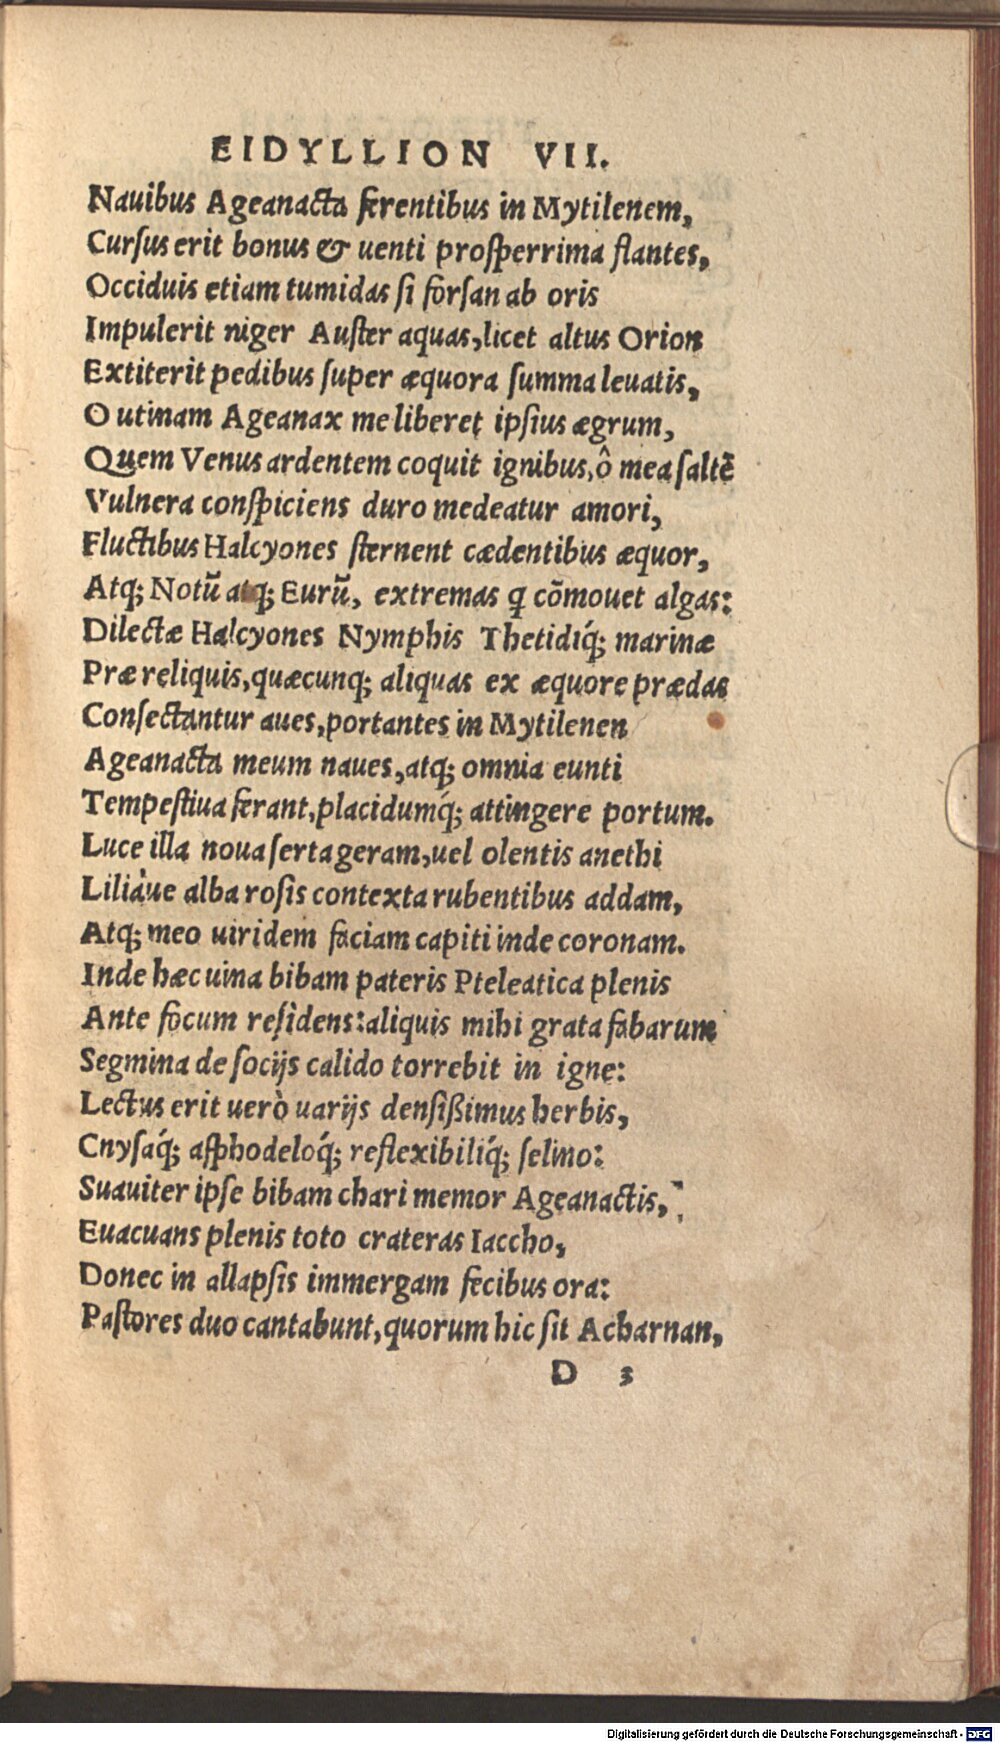 EIDYLLION VII.
Nauibus Ageanacta ferentibus in Mytilenem,
Cursus erit bonus & uenti prosperrima flantes,
Occiduis etiam tumidas si forsan ab oris
Impulerit niger Auster aquas, licet altus Orion
Extiterit pedibus super æquora summa leuatis,
O utinam Ageanax me liberet ipsius ægrum,
Quem Venus ardentem coquit ignibus, ô mea saltẽ
Vulnera conspiciens duro medeatur amori,
Fluctibus Halcyones sternent cædentibus æquor,
Atq; Notũ atq; Eurũ, extremas q cõmouet algas:
Dilectæ Halcyones Nymphis Thetidiq́; marinæ
Præ reliquis, quæcunq; aliquas ex æquore prædas
Consectantur aues, portantes in Mytilenen
Ageanacta meum naues, atq; omnia eunti
Tempestiua ferant, placidumq́; attingere portum.
Luce illa noua serta geram, uel olentis anethi
Liliàue alba rosis contexta rubentibus addam,
Atq; meo uiridem faciam capiti inde coronam.
Inde hæc uina bibam pateris Pteleatica plenis
Ante focum residens: aliquis mihi grata fabarum
Segmina de socijs calido torrebit in igne:
Lectus erit uerò uarijs densißimus herbis,
Cnysaq́; asphodeloq́; reflexibiliq́; selino:
Suauiter ipse bibam chari memor Ageanactis,
Euacuans plenis toto crateras Iaccho,
Donec in allapsis immergam fecibus ora:
Pastores duo cantabunt, quorum hic sit Acharnan,
D 3
Digitalisierung gefördert durch die Deutsche Forschungsgemeinschaft - DFG